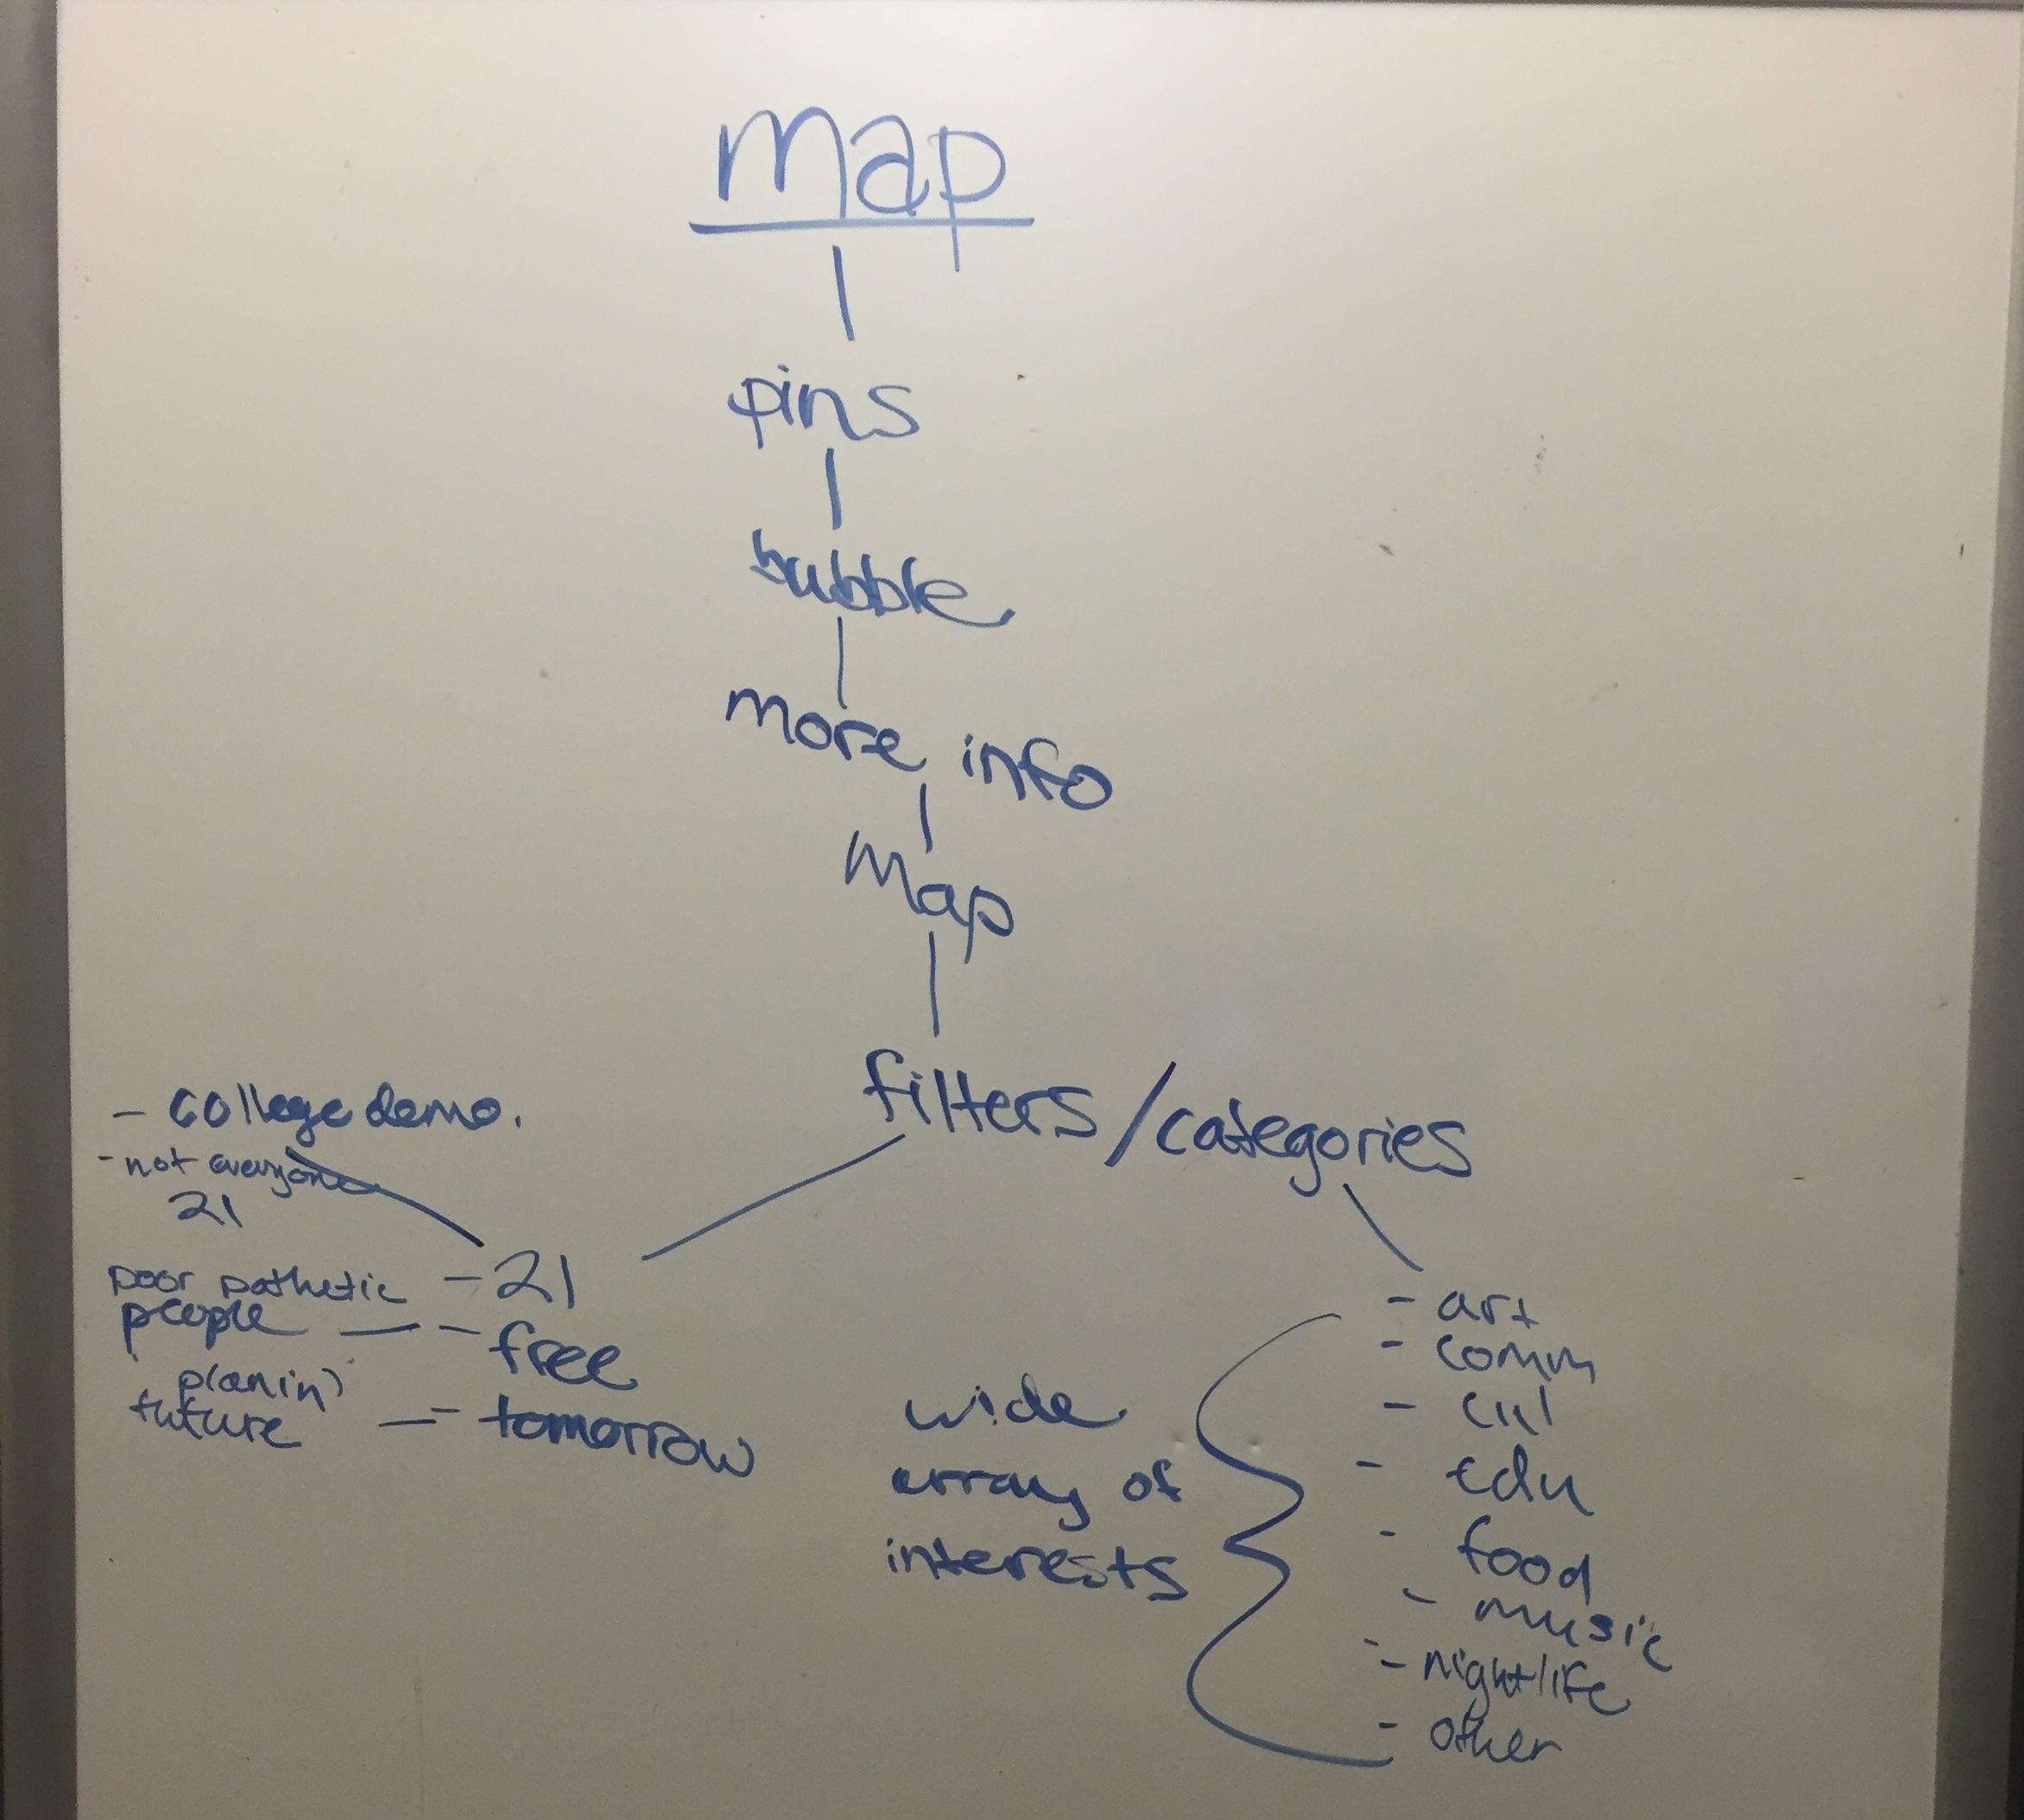 map
pins
bubble
more info
map
filters/categories
- college demo.
- not everyone
21
poor pathetic
people
planin'
future
- 21
- free
- tomorrow
wide
array of
interests
- art
- comm
- cul
- edu
- food
- music
- nightlife
- other